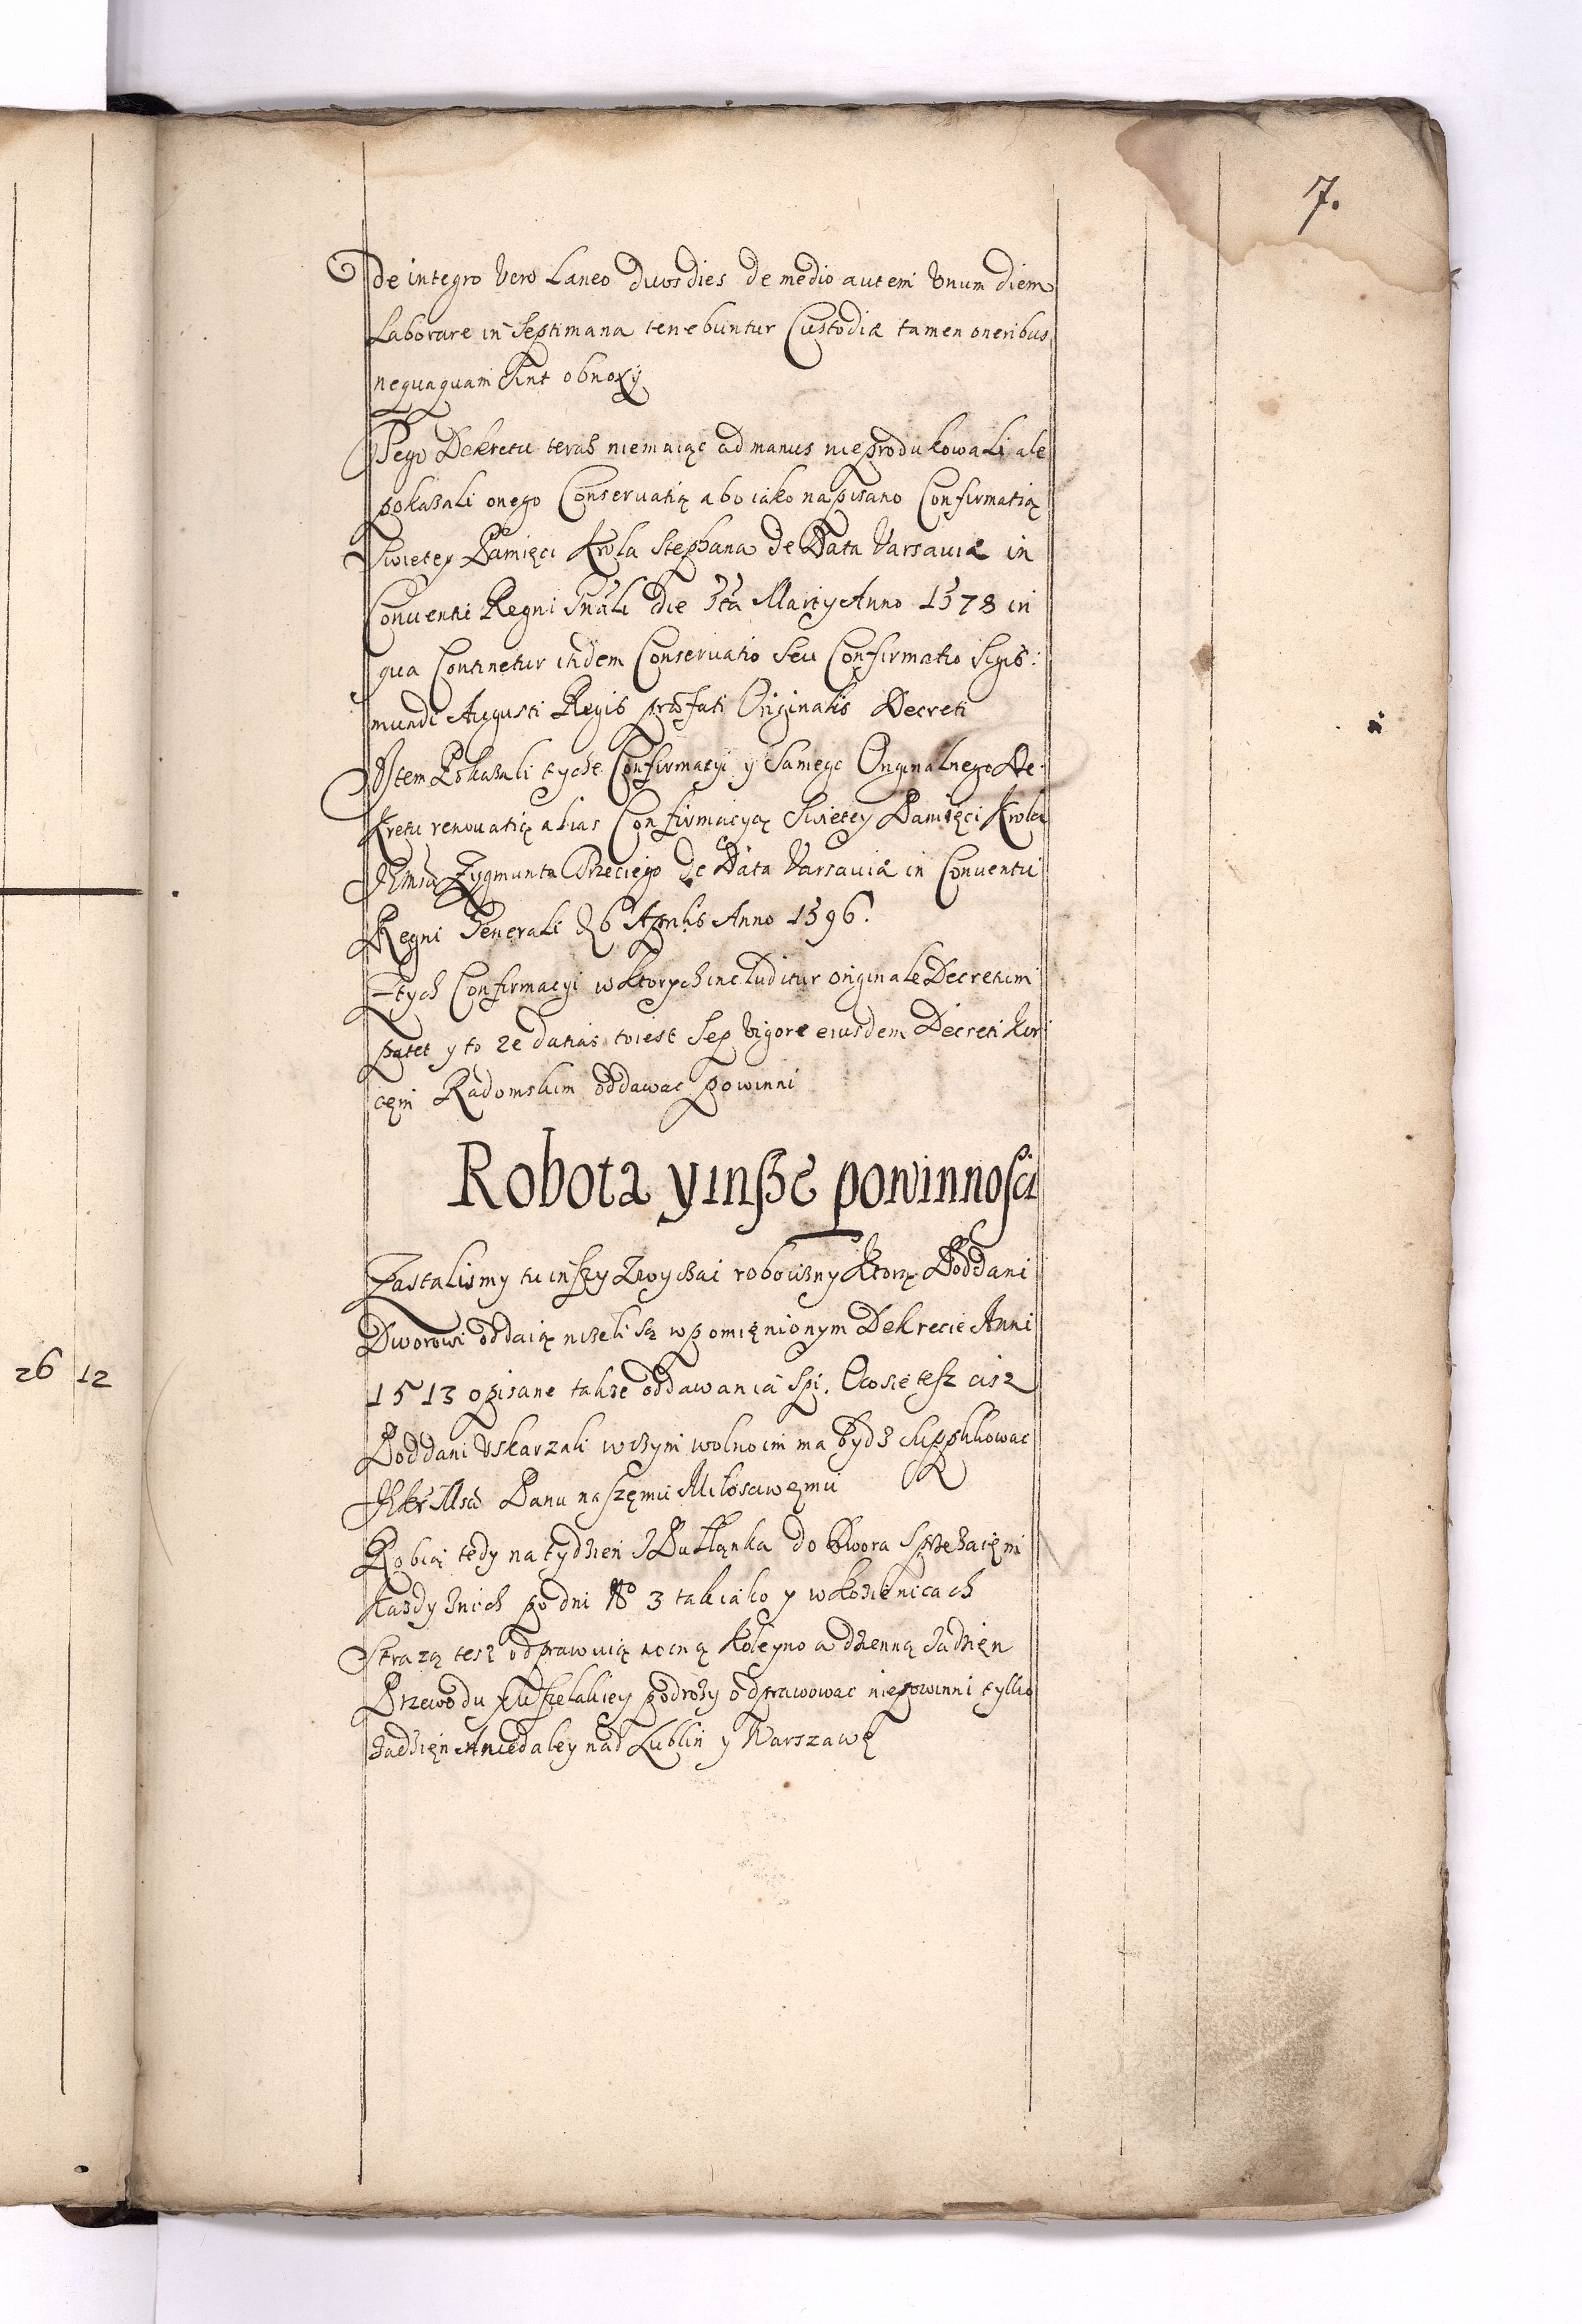 7.
de integro vero Laneo duos dies de medio autem vnum diem
Laborare in Septimana tenebuntur Custodiæ tamen oneribus
nequaquam sint obnoxij
Tego Dekretu teraz niemaiąc ad manus nieprodukowali ale
pokazali onego Conservatią abo iako napisano Confirmatią
Swietey Pamięci Krola Stephana de Data Varsaviæ in
Conventu Regni Gnāli die Marty Anno 1578 in
qua Continetur itidem Conservatio seu Confirmatio Sigis:
mundi Augusti Regis præfati Originalis Decreti
Item Pokazali tychze Confirmacyi y Samego Originalnego De:
kretu renovatią alias Confirmacyą Swietey Pamięci Krola
Zygmunta Trzeciego de Data Varsaviæ in Conventu
Regni Generali 6 Aprilis Anno 1596.
Ztych Confirmacyi w ktorych includitur originale Decretum
patet y to ze datias toiest Sep vigore eiusdem Decreti
Radomskim oddawac powinni
Robota y insze powinnosci
Zastalismy tu inszy zwyczai robocizny Ktorą Poddani
Dworowi oddaią nizeli są wpomięnionym Dekrecie Anni
1513 opisane takze oddawania Spi. Ocosie tesz cisz
Poddani Vskarzali wczym wolno im ma bydz supplikowac
Panu naszęmu Miłosciwęmu
Robią tedy na tydzien zPułłanka do Dwora Sprzęzaięm
Kazdy znich po dni No 3 tak iako y wKozienicach
Strazą tesz odprawuią nocną koleyno a dzienną zadnięn
Przewodu y wszelakiey podrozy odprawowac niepowinni tylko
niedaley nad Lublin y Warszawę
26 12